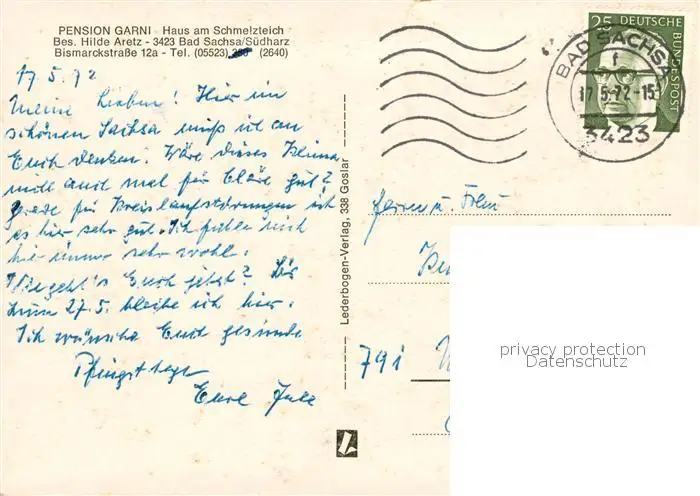 PENSION GARNI - Haus am Schmelzteich
Bes. Hilde Aretz - 3423 Bad Sachsa/Südharz
Bismarckstraße 12a - Tel. (05523) (2640)
17.5.72
Meine Lieben! Hier im
schönen Sachsa muß ich an
Euch denken. Wäre dieses Klima
nicht auch mal für Cläre gut?
Gerade für Kreislaufstörungen ist
es hier sehr gut. Ich fühle mich
hier immer sehr wohl.
Wie geht's Euch jetzt? Bis
zum 27.5. bleibe ich hier.
Ich wünsche Euch gesunde
Pfingsttage
Eure
Lederbogen-Verlag, 338 Goslar
25 DEUTSCHE
BUNDESPOST
BAD SACHSA
f
17.5.72-15
3423
Herrn u. Frau
791
privacy protection
Datenschutz